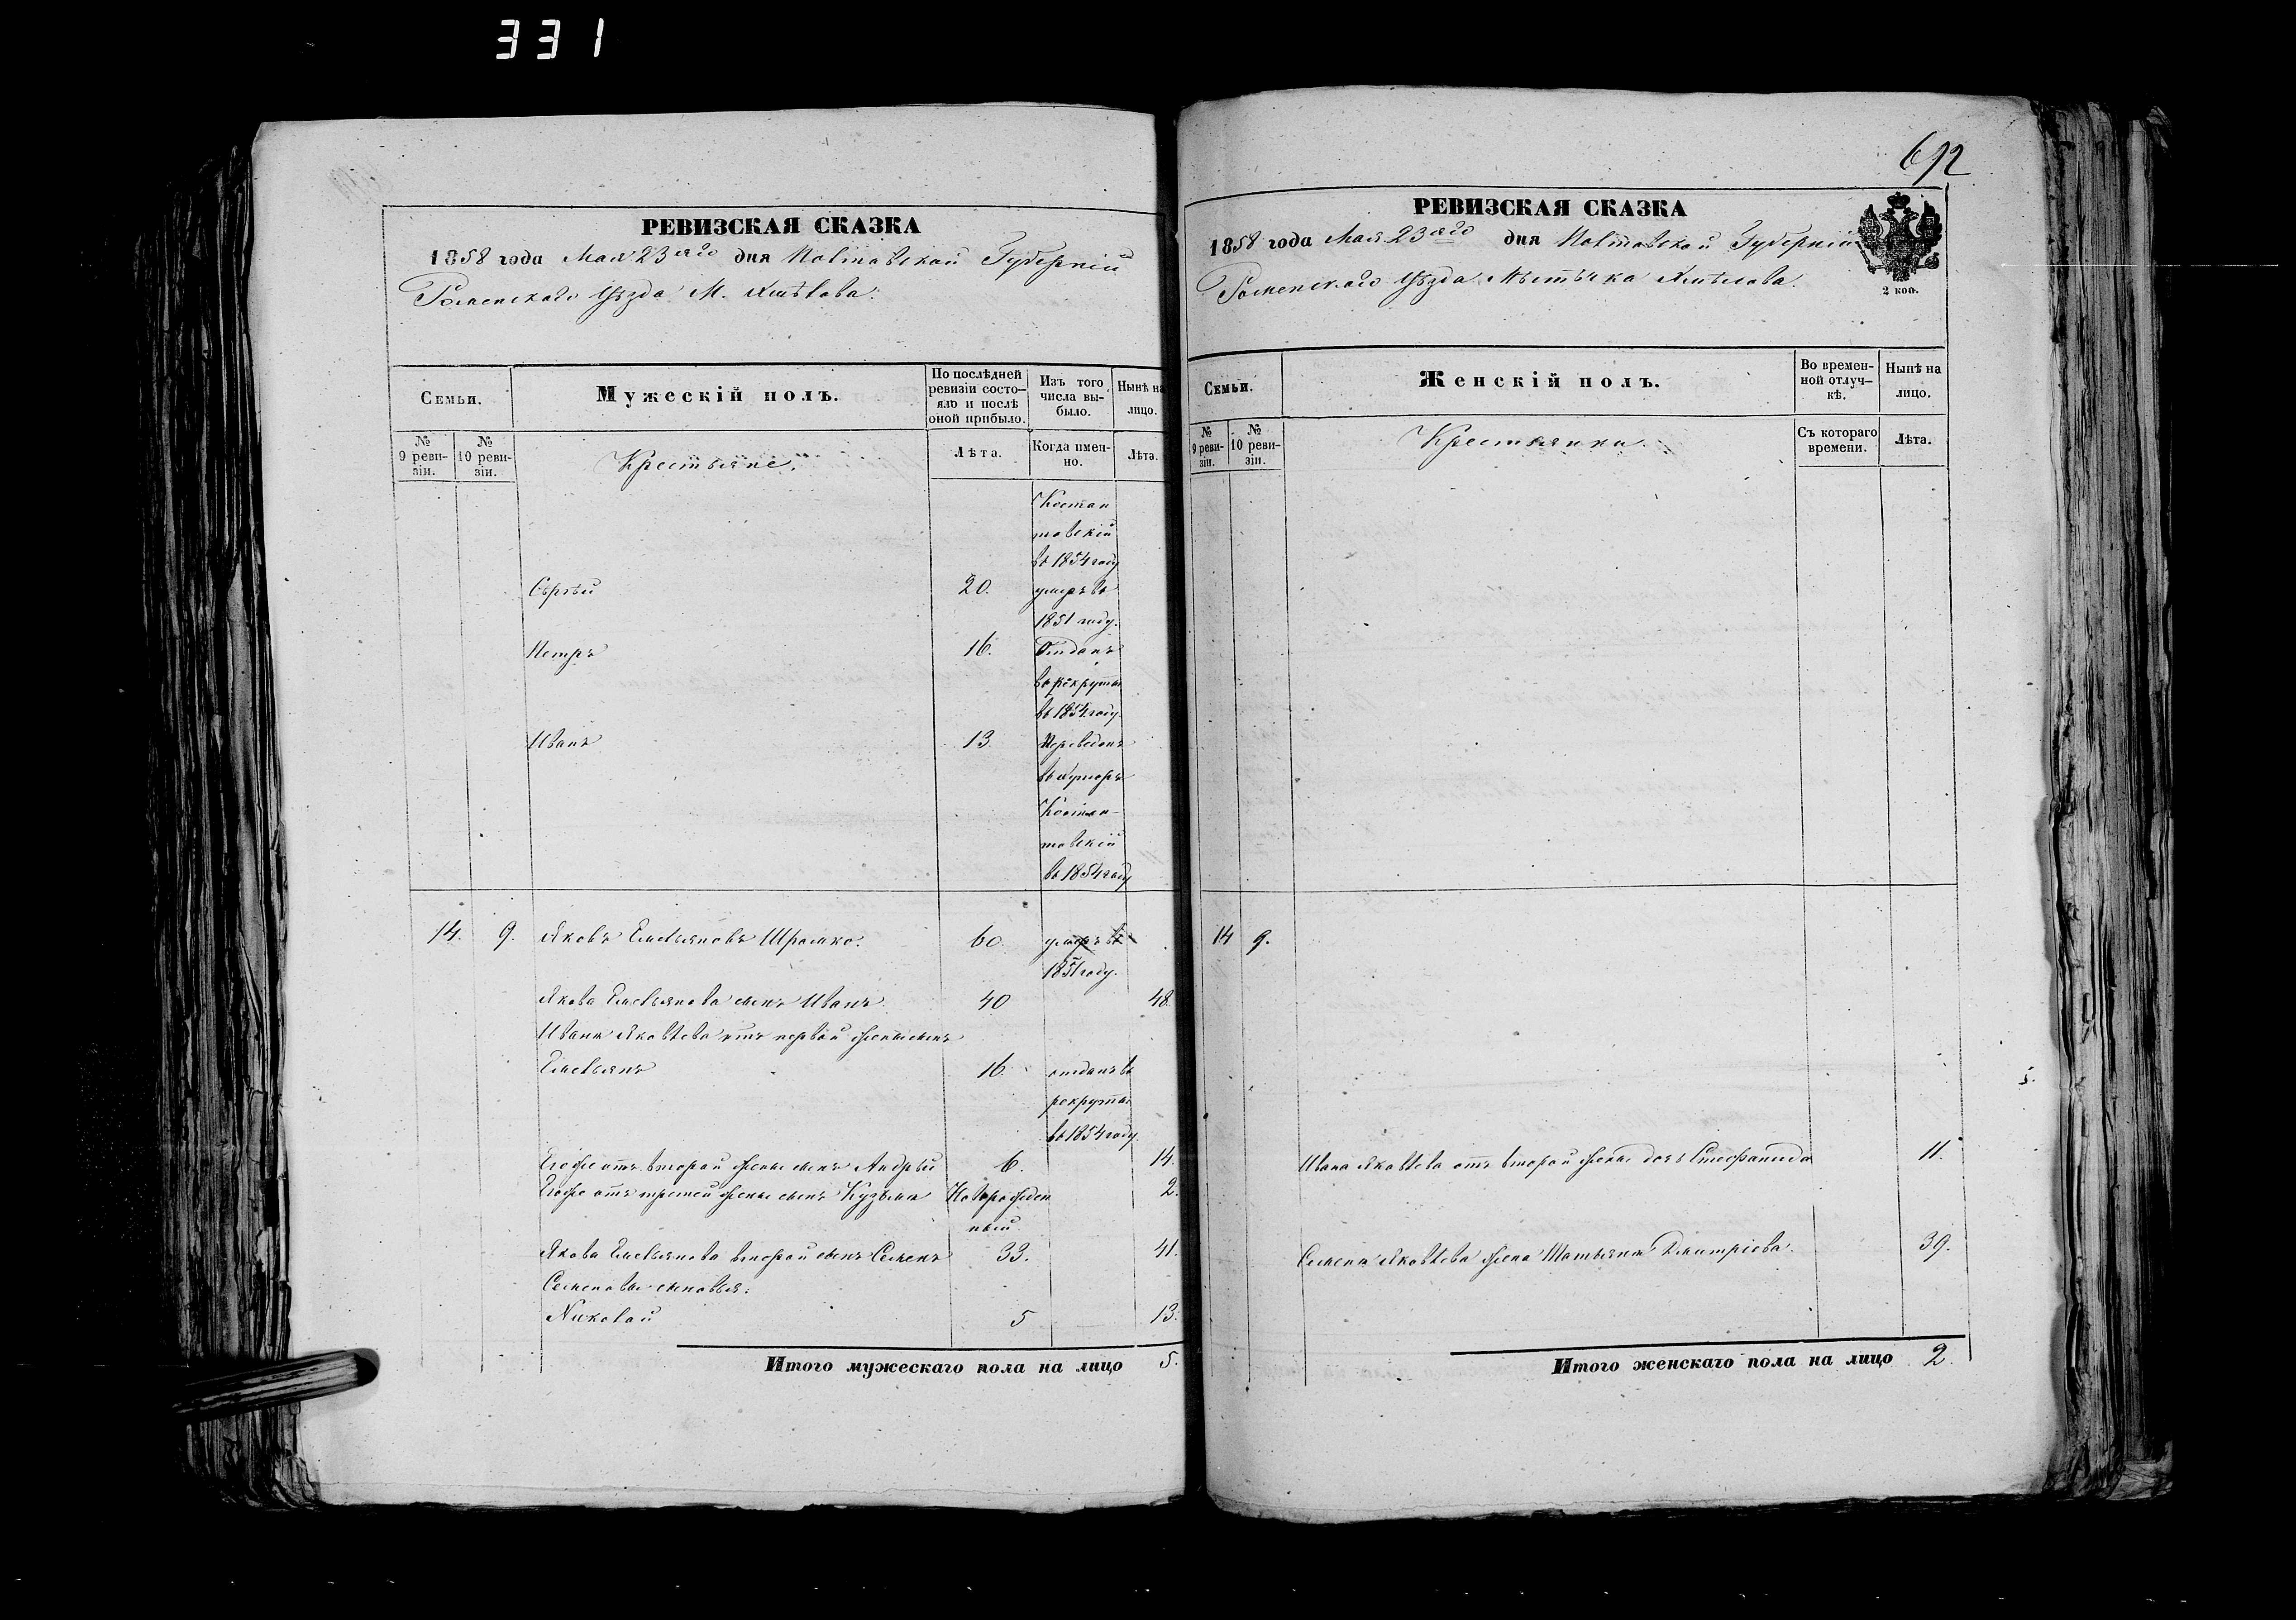 331
РЕВИЗСКАЯ СКАЗКА
1858 года Мая 23аго дня Полтавской Губерніи
Роменскаго Уѣзда М. Хмѣлова.
Семьи.
Мужескій полъ.
По послѣдней ревизіи состояло и послѣ оной прибыло.
Изъ того числа выбыло.
Нынѣ на лицо.
№ 9 ревизіи.
№ 10 ревизіи.
Крестьяне.
Лѣта.
Когда именно.
Лѣта.
Костан
товскій
въ 1854 году
Сергѣй 20. умеръ въ
1851 году.
Петръ 16. Отданъ
въ рекруты
въ 1854 году
Иванъ 13 Переведенъ
въ хуторъ
Костан-
товскій
въ 1854 году
14. 9. Яковъ Емельяновъ Шрамко. 60. умеръ въ
1851 году.
Якова Емельянова сынъ Иванъ 40 48.
Ивана Яковлева отъ первой жены сынъ
Емельянъ 16. отданъ въ
рекруты
въ 1854 году.
Егоже отъ второй жены сынъ Андрѣй 6. 14.
Егоже отъ третей жены сынъ Кузьма Новорожден 2.
ный
Якова Емельянова второй сынъ Семенъ 33. 41.
Семеновы сыновья:
Николай 5 13.
Итого мужескаго пола на лицо 5.
692
РЕВИЗСКАЯ СКАЗКА
1858 года Мая 23аго дня Полтавской Губерніи
Роменскаго Уѣзда Мѣстечка Хмѣлова.
2 коп.
Семьи.
Женскій полъ.
Во временной отлучкѣ.
Нынѣ на лицо.
№ 9 ревизіи.
№ 10 ревизіи.
Крестьянки.
Съ котораго времени.
Лѣта.
14 9.
Ивана Яковлева отъ второй жены дочь Стефанида 11.
Семена Яковлева жена Татьяна Дмитріева 39.
Итого женскаго пола на лицо 2.